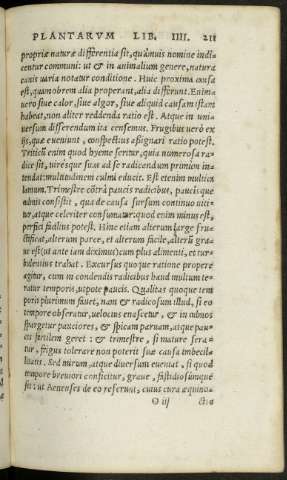 PLANTARVM LIB. IIII. 211
propriæ naturæ differentia sit, quāuis nomine indi-
centur communi: ut & in animalium genere, natura
canis uaria notatur conditione. Huic proxima causa
est, quam obrem alia properant, alia differunt. Enim
uero siue calor, siue algor, siue aliquid causam istam
habeat, non aliter reddenda ratio est. Atque in uni-
uersum differendum ita censemus. Frugibus uerò ex
ijs, quæ eueniunt, conspectius aßignari ratio potest.
Triticū enim quod hyeme seritur, quia numerosa ra-
dice sit, uiresque suas ad se radicandum primùm in-
tendat: multitudinem culmi educit. Est etenim multicu
lmum. Trimestre cōtrà paucis radicibus, paucisque
nibus consistit, qua de causa sursum continuo uiti-
tur, atque celeriter consumatur: quod enim minus est,
perfici facilius potest. Hinc etiam alterum large fru-
ctificat, alterum parce, et alterum facile, alterū graue
ue est (ut ante iam diximus) cum plus alimenti, et tur-
bulentius trahat. Excursus quoque ratione properè
agitur, cum in condendis radicibus haud multum te-
ratur temporis, utpote paucis. Qualitas quoque tem
poris plurimum fauet, nam & radicosum illud, si eo
tempore obseratur, uelocius enascetur, & in culmos
spargetur pauciores, & spicam paruam, atque pau-
cis fertilem geret: & trimestre, si mature sera-
tur, frigus tolerare non poterit suæ causa imbecil-
litatis. Sed mirum, atque diuersum eueniat, si quod
tempore breuiori conficitur, graue, fastidiosumque
sit: ut Aenenses de eo referunt, cuius cura æquino-
O iij ctia